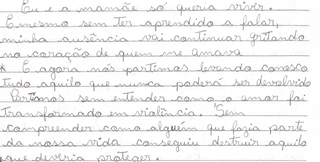 Eu e a mamãe só queria viver.
E mesmo sem ter aprendido a falar,
minha ausência vai continuar gritando
no coração de quem me amava
* E agora nós partimos levando conosco
tudo aquilo que nunca poderá ser devolvido
Partimos sem entender como o amor foi
transformado em violência. Sem
compreender como alguém que fazia parte
da nossa vida conseguiu destruir aquilo
que deveria proteger.